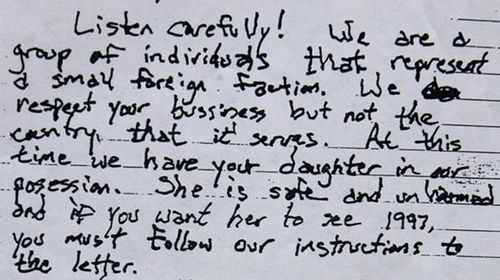 Listen carefully! We are a
group of individuals that represent
a small foreign faction. We
respect your bussiness but not the
country that it serves. At this
time we have your daughter in our
posession. She is safe and unharmed
and if you want her to see 1997,
you must follow our instructions to
the letter.